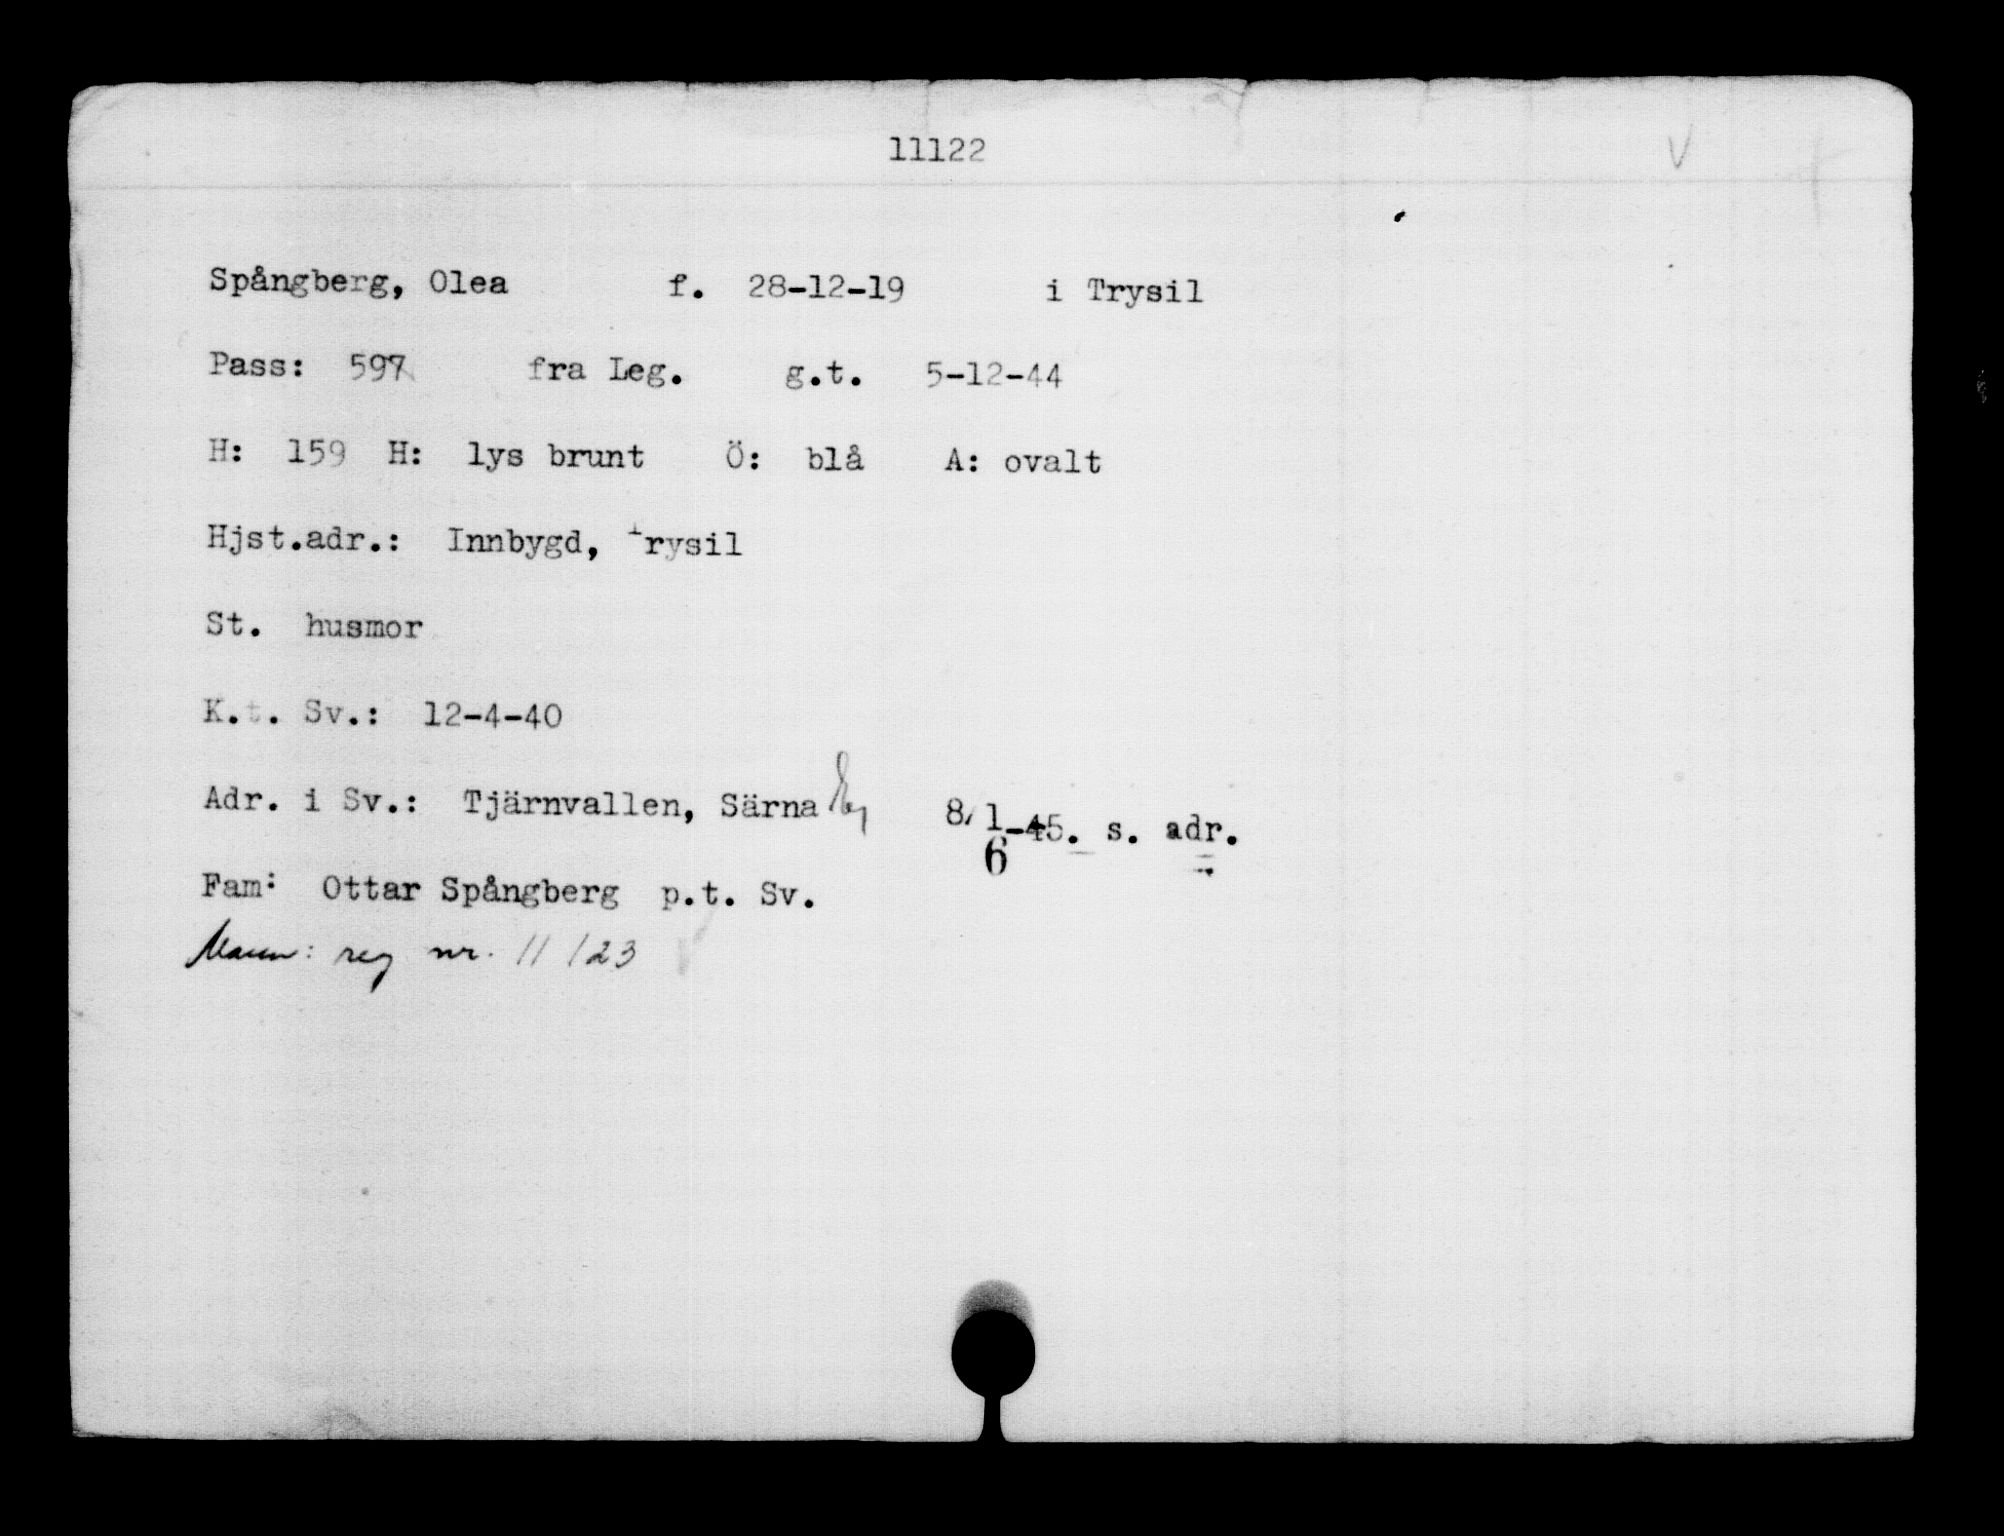 11122
Spångberg, Olea f. 28-12-19 i Trysil
Pass: 597 fra Leg. g.t. 5-12-44
H: 159 H: lys brunt Ö: blå A: ovalt
Hjst.adr.: Innbygd, Trysil
St. husmor
K.t. Sv.: 12-4-40
Adr. i Sv.: Tjärnvallen, Särna 8/1-45. s. adr.
6
Fam: Ottar Spångberg p.t. Sv.
Mann: reg nr. 11123